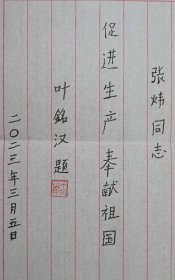 张炜同志
促进生产 奉献祖国
叶铭汉题
二〇二三年三月五日